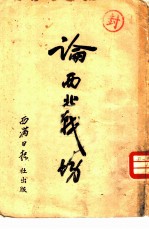 封
論西北戰場
西滿日報社出版